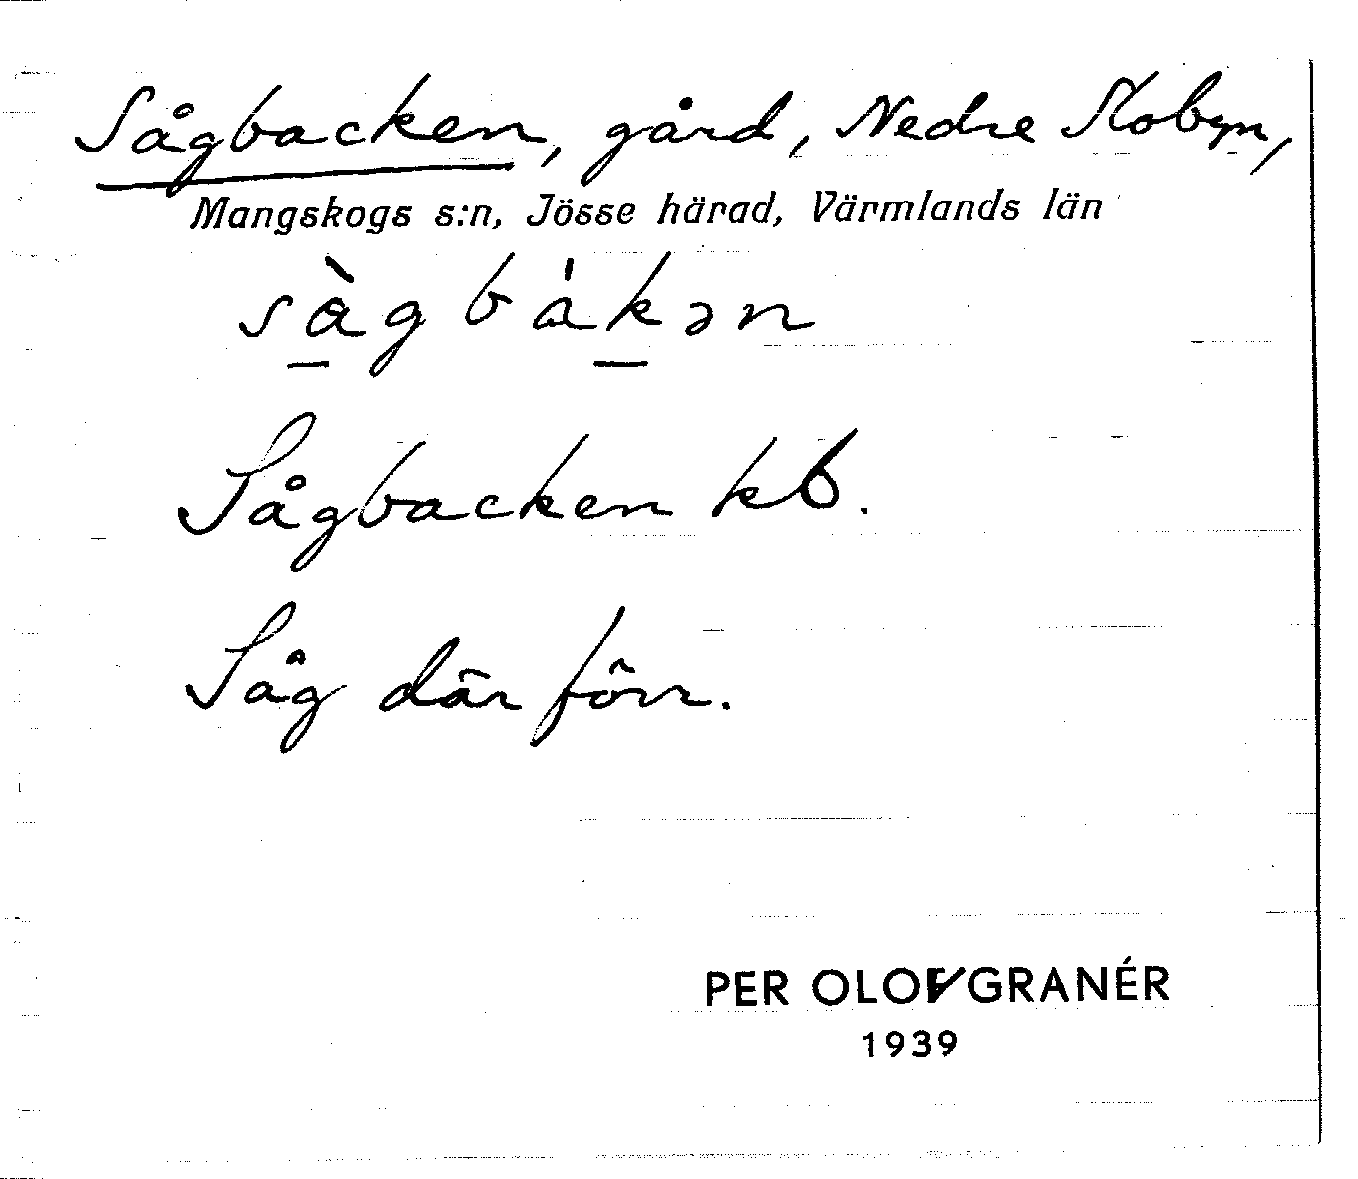 Sågbacken, gård, Nedre Skobyn,
Mangskogs s:n, Jösse härad, Värmlands län
sàgbákən
Sågbacken kb.
Såg där förr.
PER OLOV GRANÉR
1939